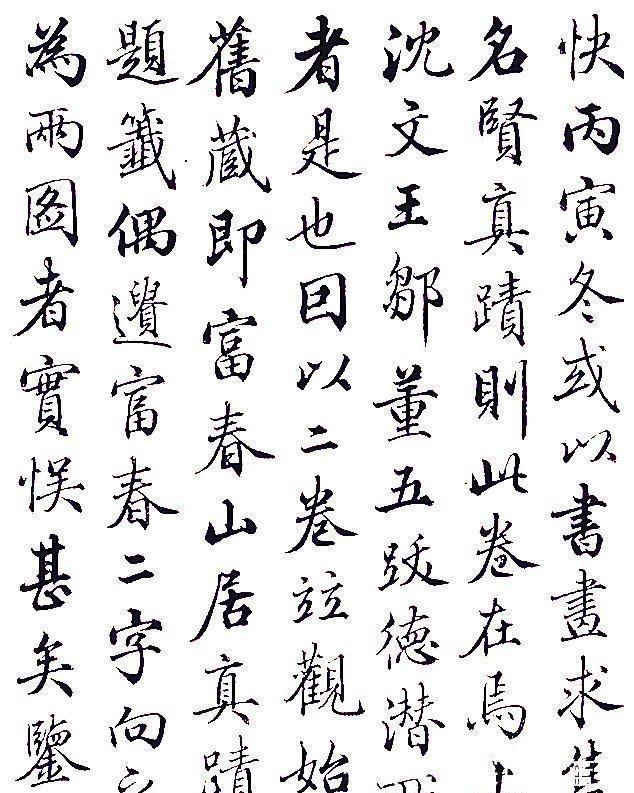 快丙寅冬或以書畫求售
名賢真蹟則此卷在焉上
沈文王鄒董五跋德潛
者是也因以二卷竝觀始
舊蔵即富春山居真蹟
題籤偶遺富春二字向
為兩圖者實悮甚矣鑒